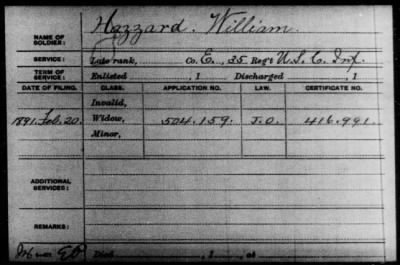 NAME OF SOLDIER: Hazzard, William.
SERVICE: Late rank, Co. E., 35 Reg't U.S.C. Inf.
TERM OF SERVICE: Enlisted , 1 Discharged , 1
DATE OF FILING. CLASS. APPLICATION NO. LAW. CERTIFICATE NO.
Invalid,
1891. Feb. 20. Widow, 504.159. J.O. 416.991.
Minor,
ADDITIONAL SERVICES:
REMARKS:
Died , 1 , at